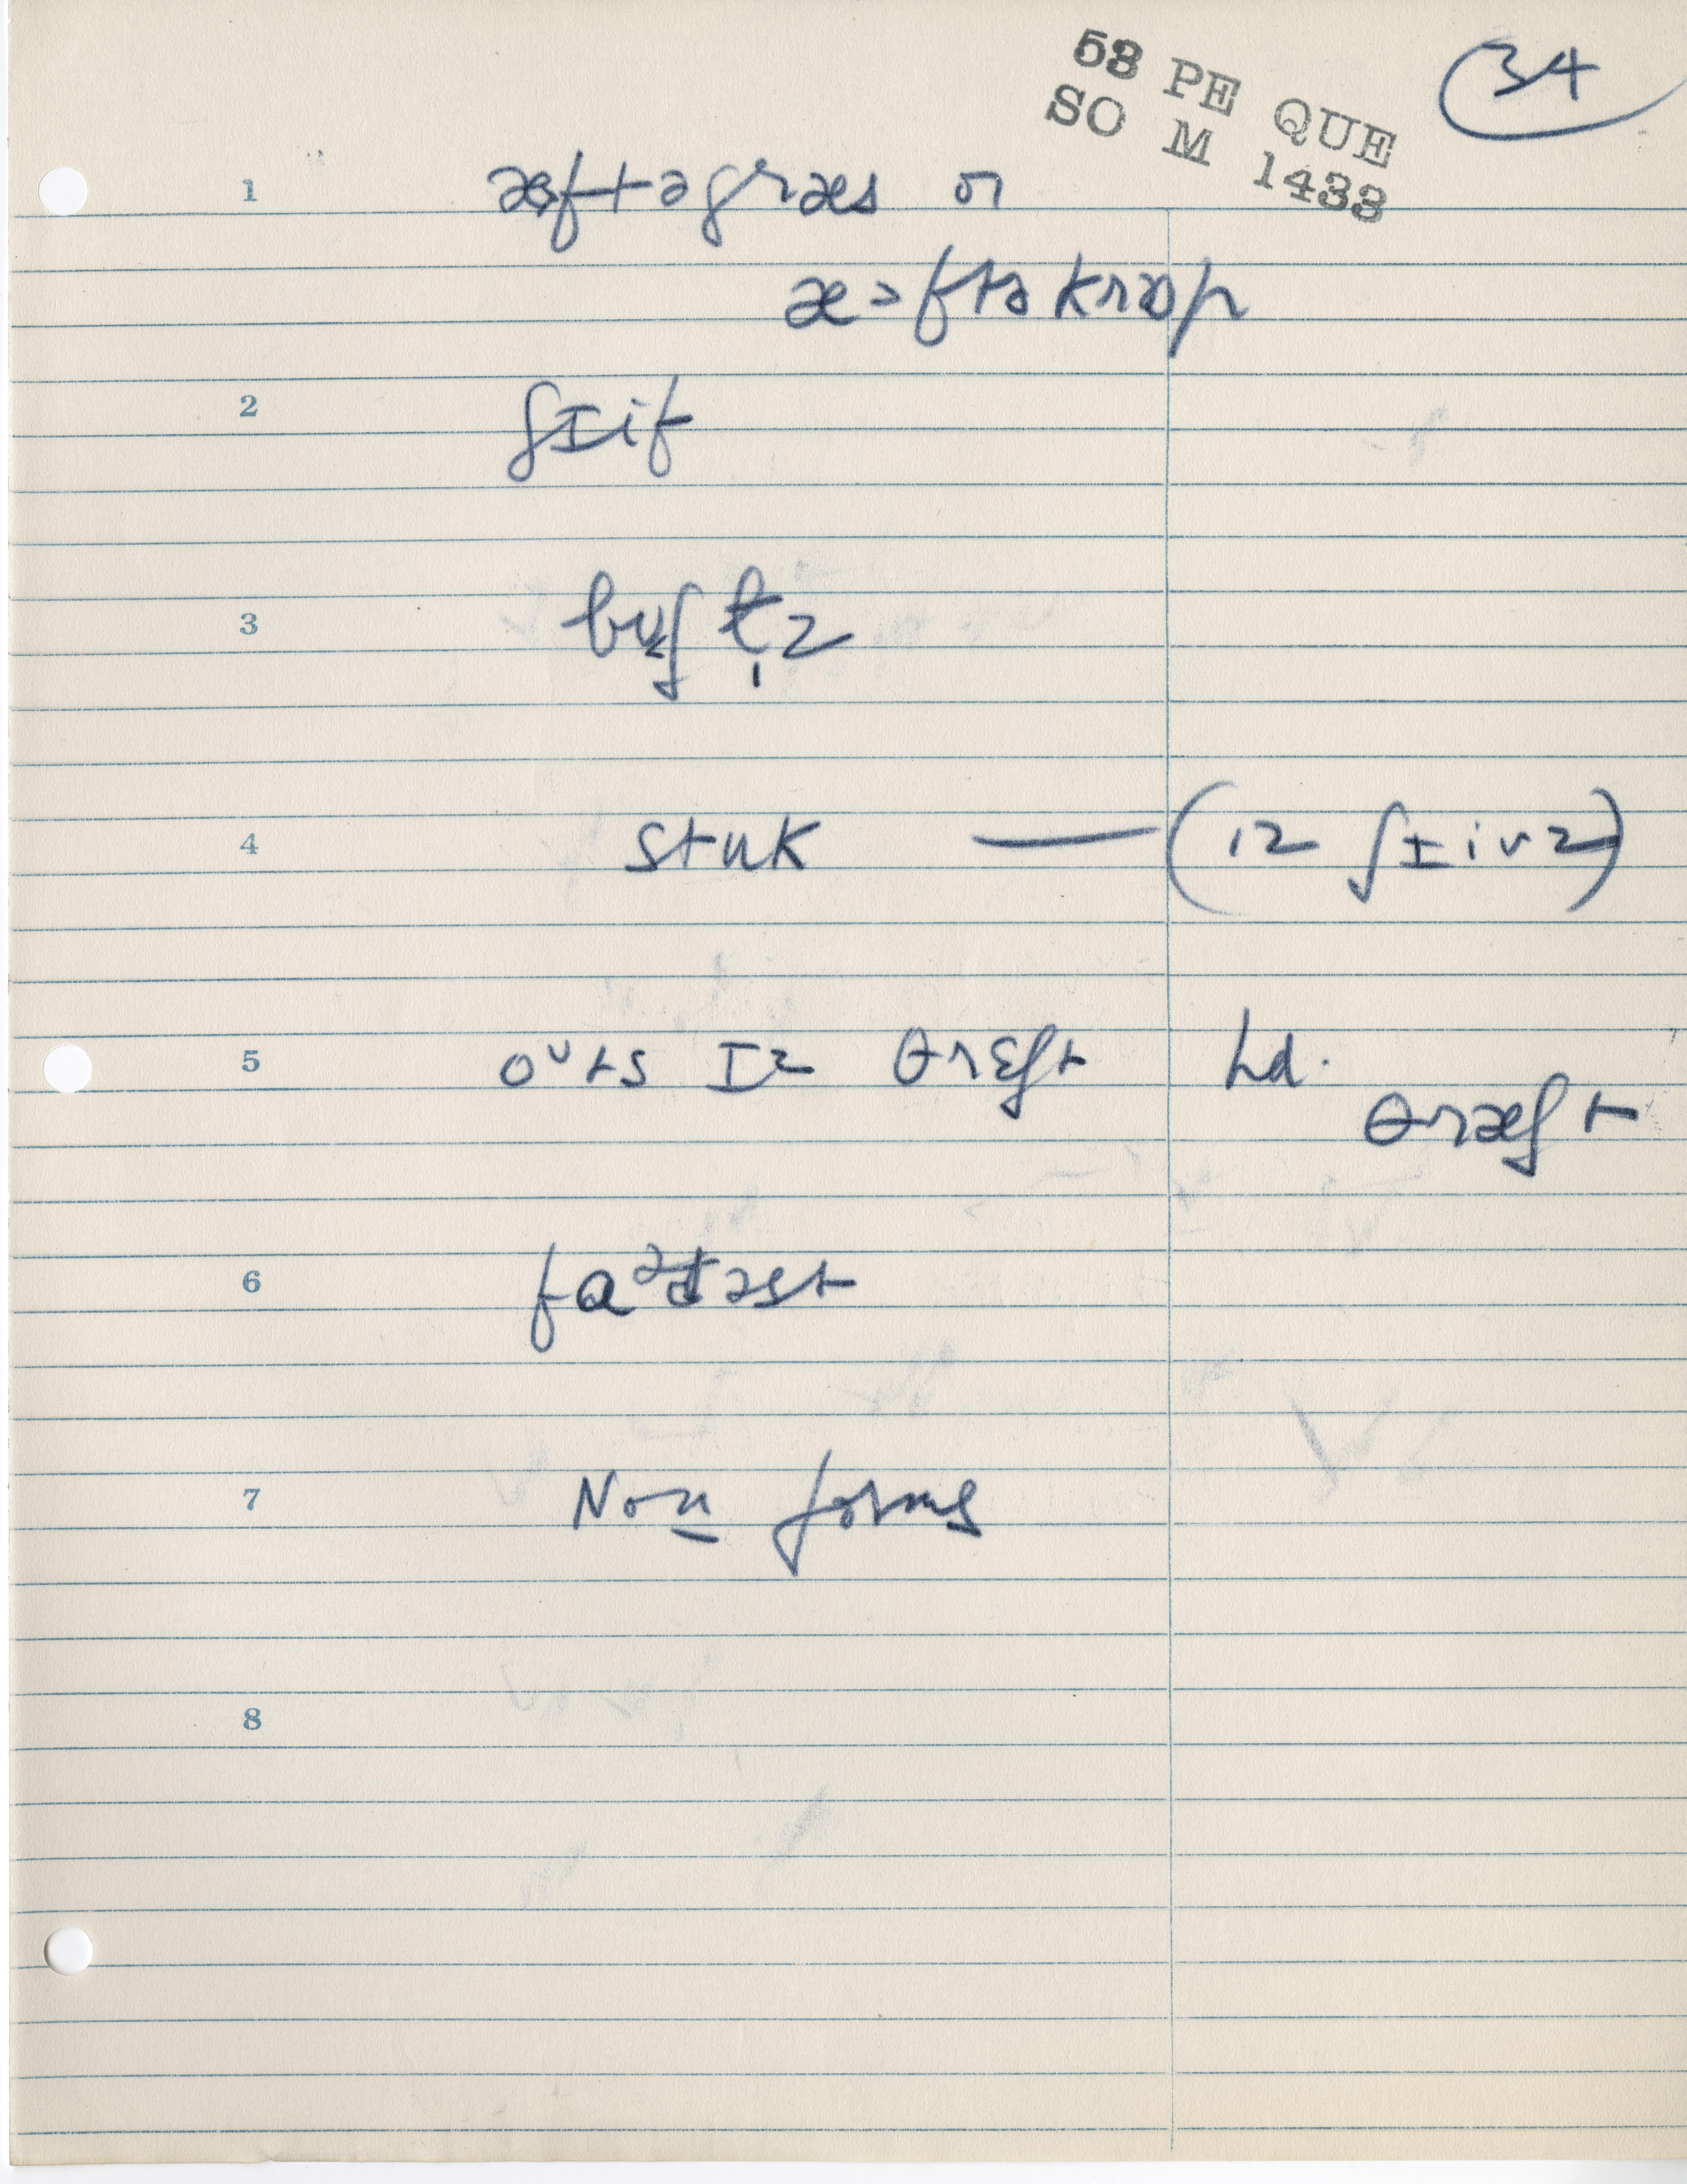 53 PE QUE
SO M 1433
34
1 æftəgræs or
æ>ftə krɒp
2 ʃɪif
3 bʊʃt̩z
4 stuk — (iz ʃɪivz)
5 oʊts ɪz θrɛʃt hd.
θræʃt
6 fɑədəst
7 Non forms
8